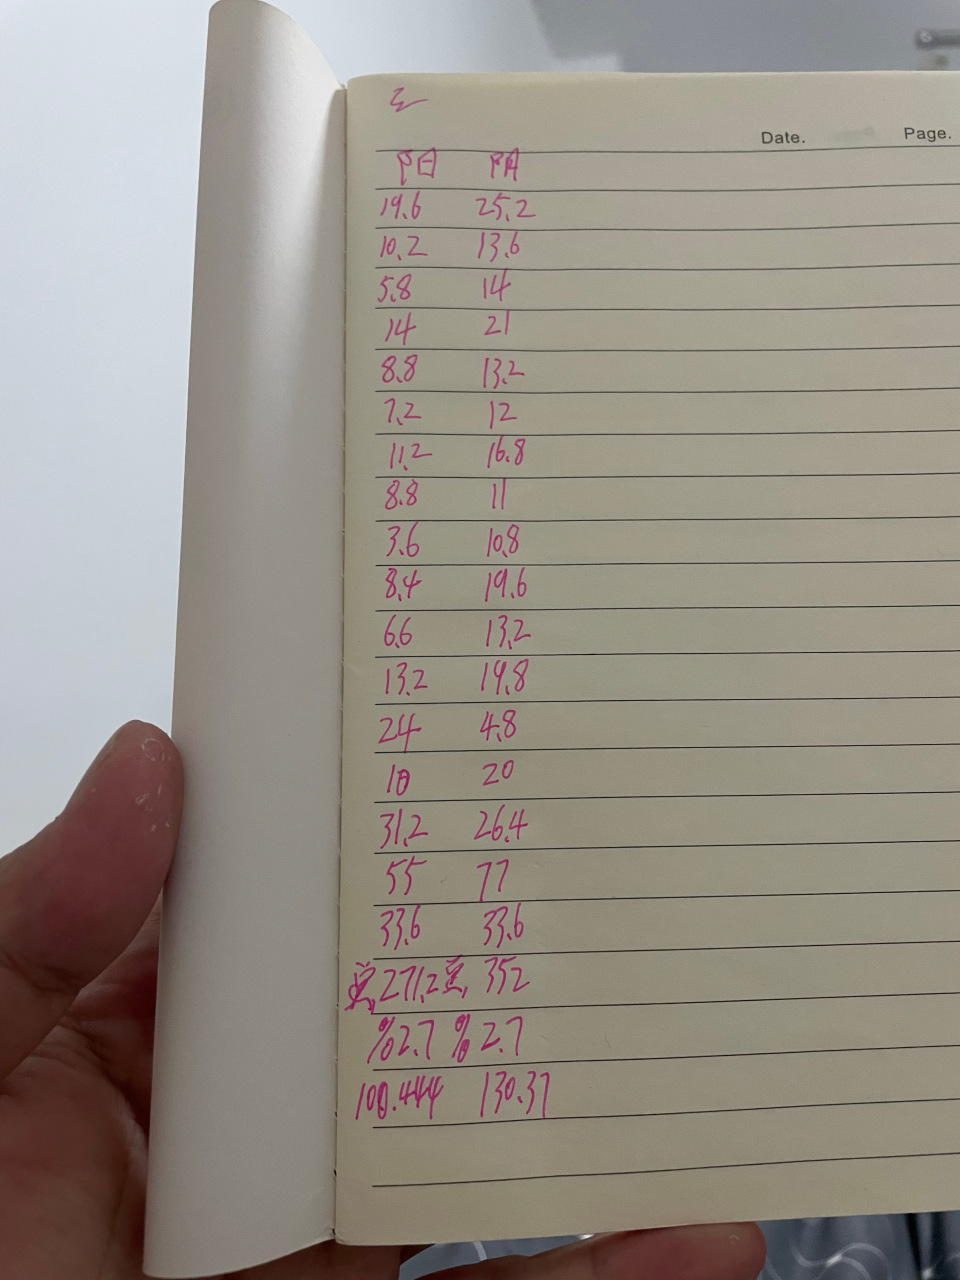 Date. Page.
阳 阴
19.6 25.2
10.2 13.6
5.8 14
14 21
8.8 13.2
7.2 12
11.2 16.8
8.8 11
3.6 10.8
8.4 19.6
6.6 13.2
13.2 19.8
24 4.8
10 20
31.2 26.4
55 77
33.6 33.6
271.2 352
%2.7 %2.7
100.444 130.37